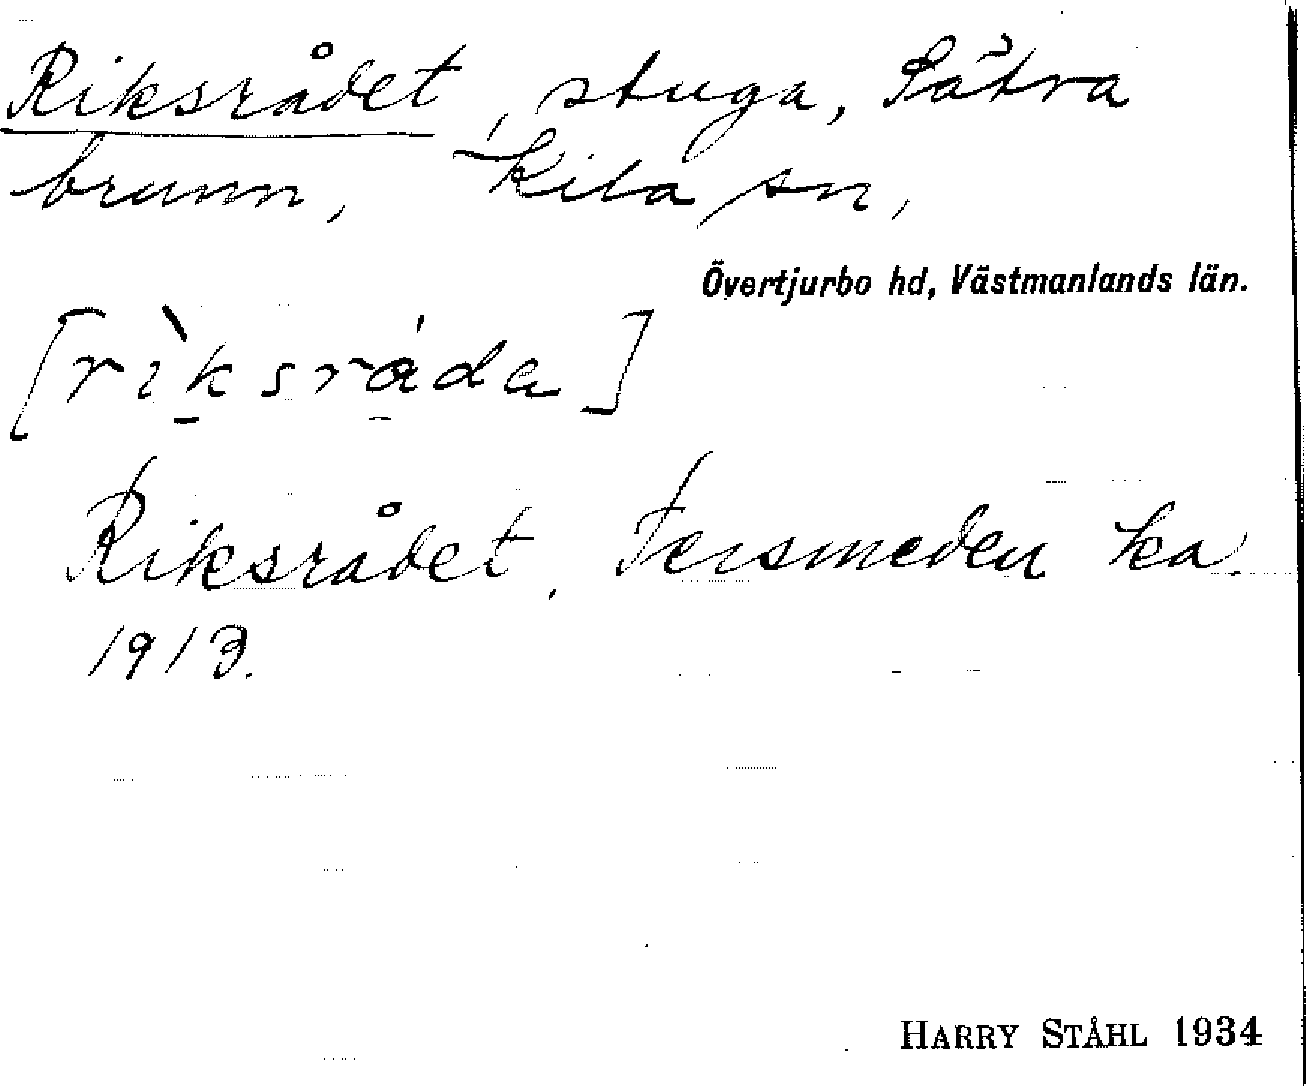 Riksrådet, stuga, Sätra
brunn, Kila sn,
Övertjurbo hd, Västmanlands län.
[rìksráda]
Riksrådet, Tersmeden ka.
1913.
HARRY STÅHL 1934